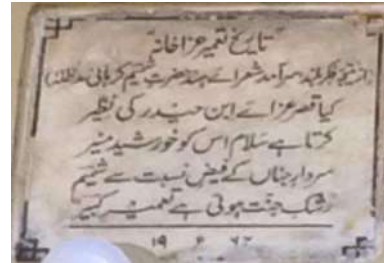 تاریخ تعمیر عزاخانہ
از نتیجۂ فکر بلند سرآمد شعرائے ہند حضرت شمیم کرہانی مدظلہٗ
کیا قصرِ عزائے ابن حیدر کی نظیر
کرتا ہے سلام اس کو خورشید منیر
سردار جناں کے فیض نسبت سے شمیم
رشک جنت ہوئی ہے تعمیر کبیر
۱۹۶۲